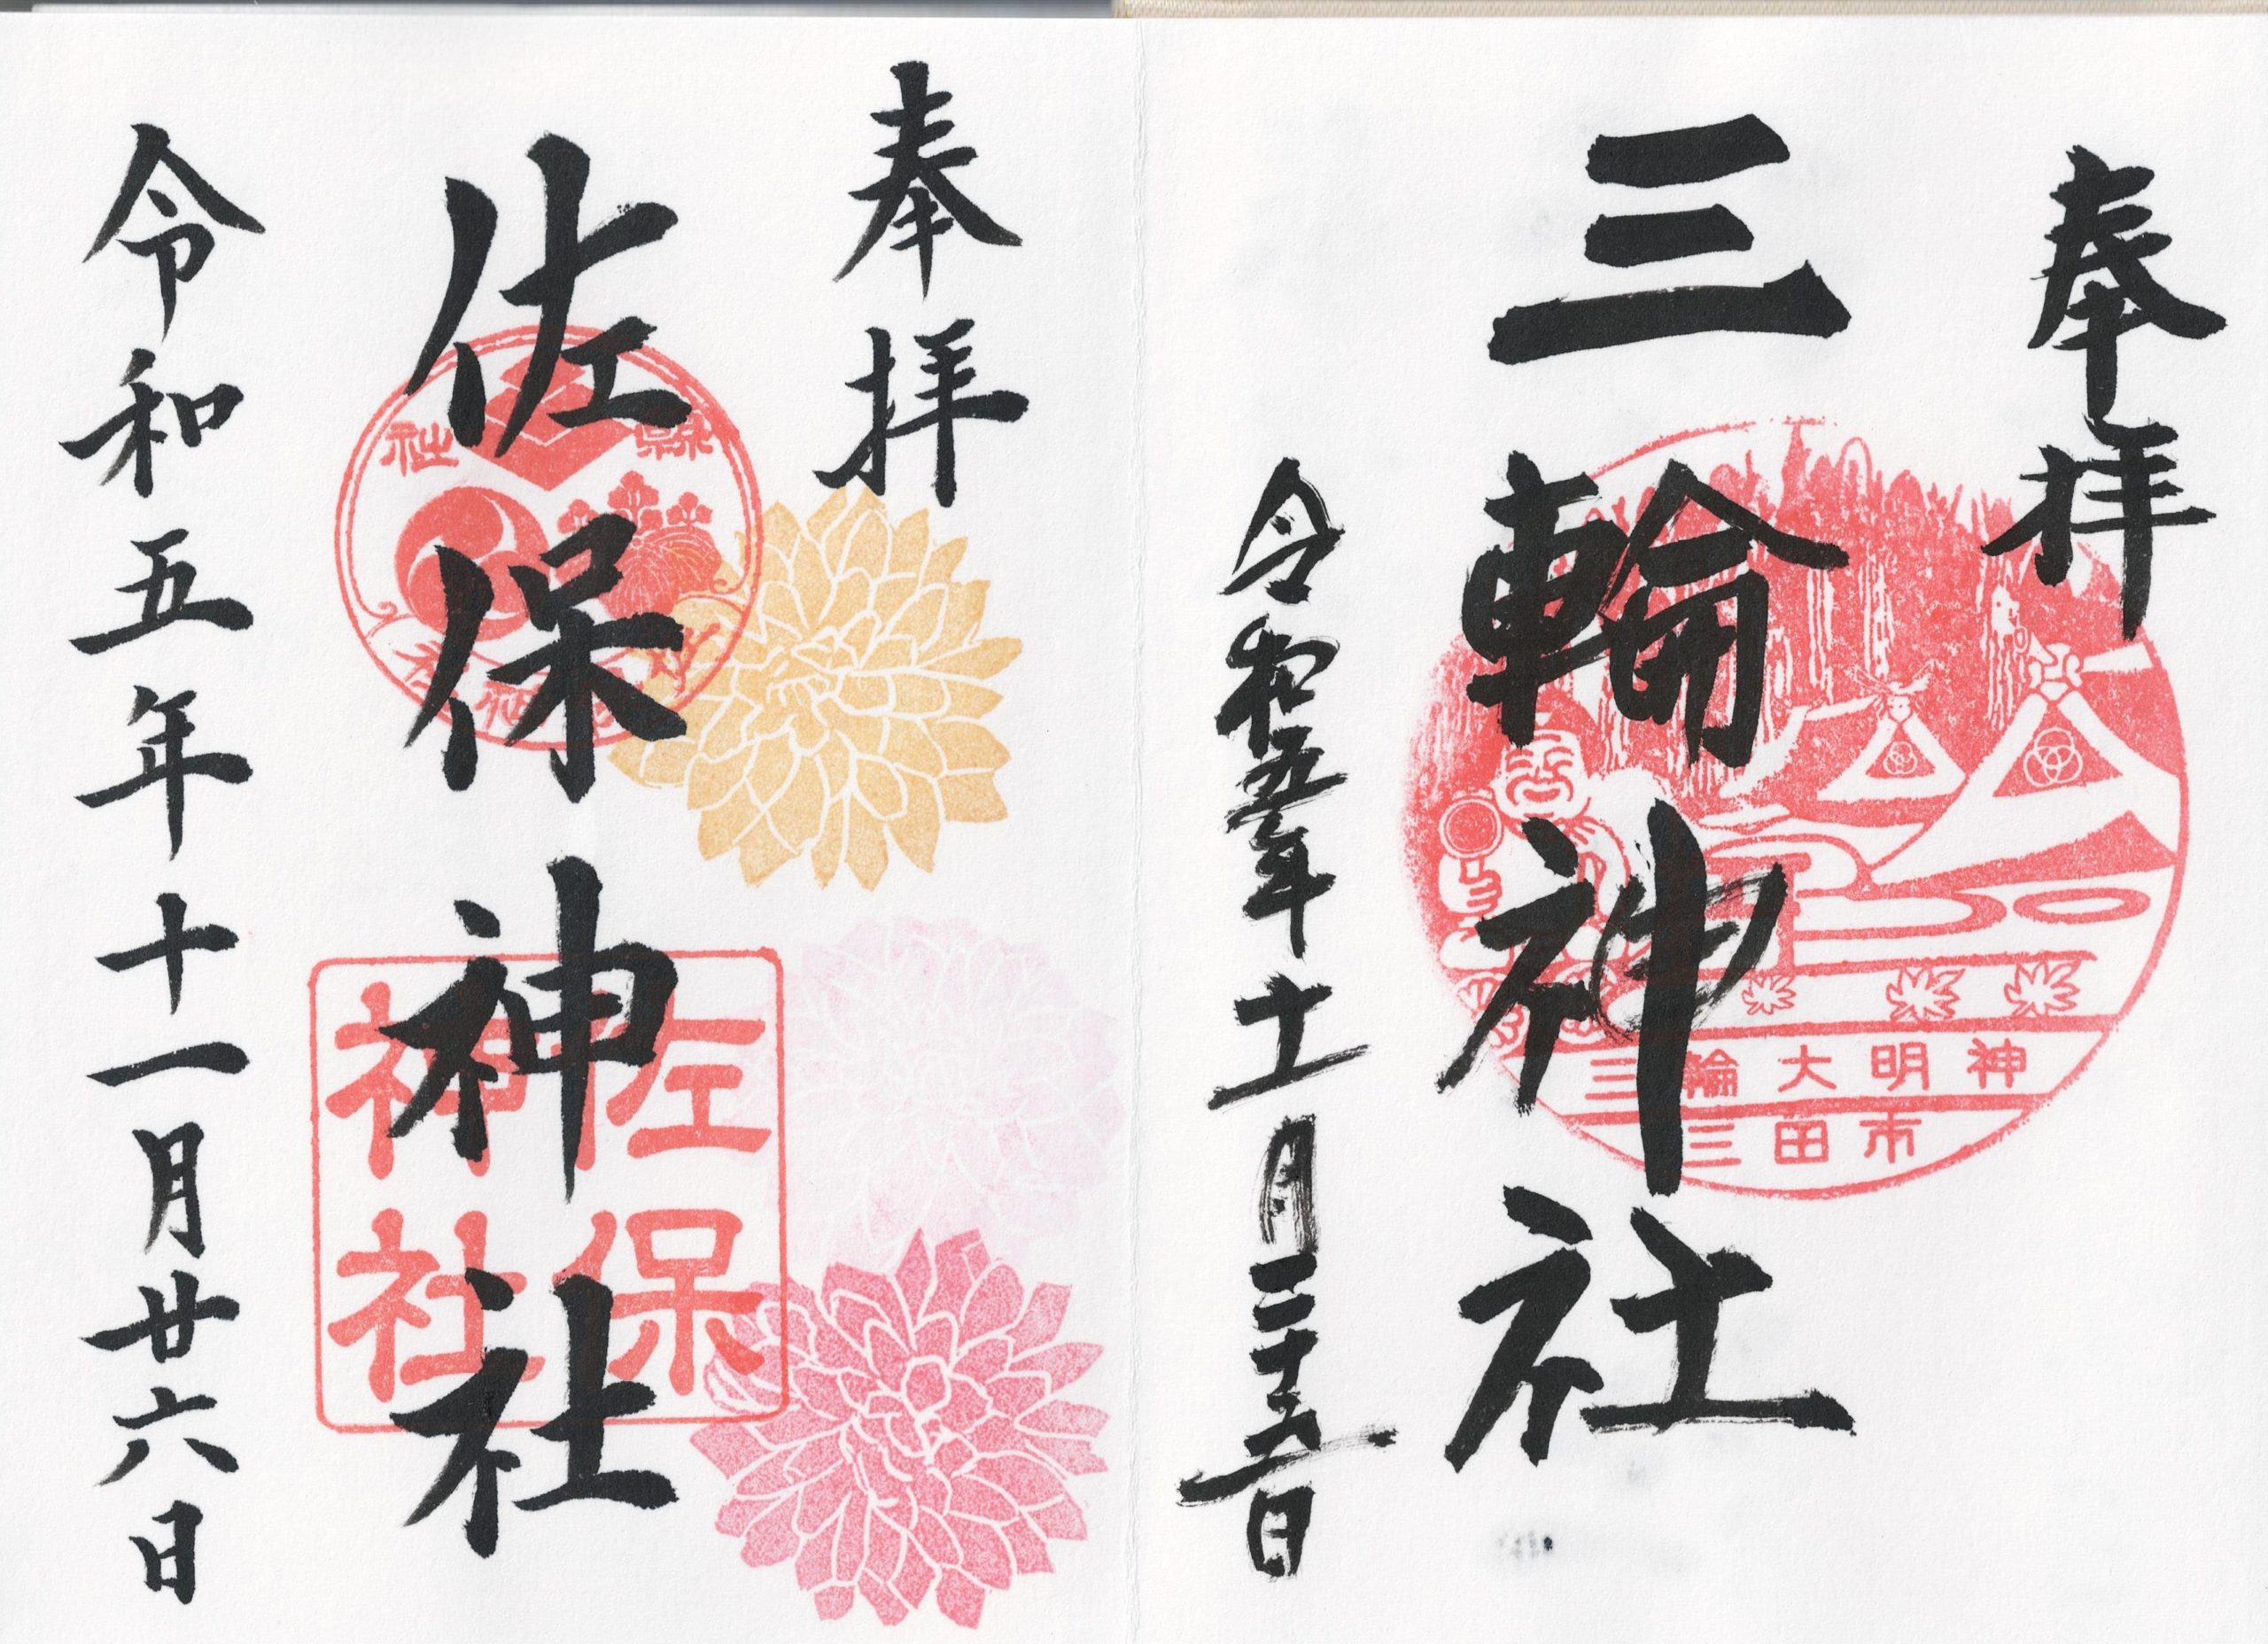 奉拝
三輪神社
三輪大明神
三田市
令和五年十一月二十六日
奉拝
佐保神社
縣社
佐保
神社
令和五年十一月廿六日